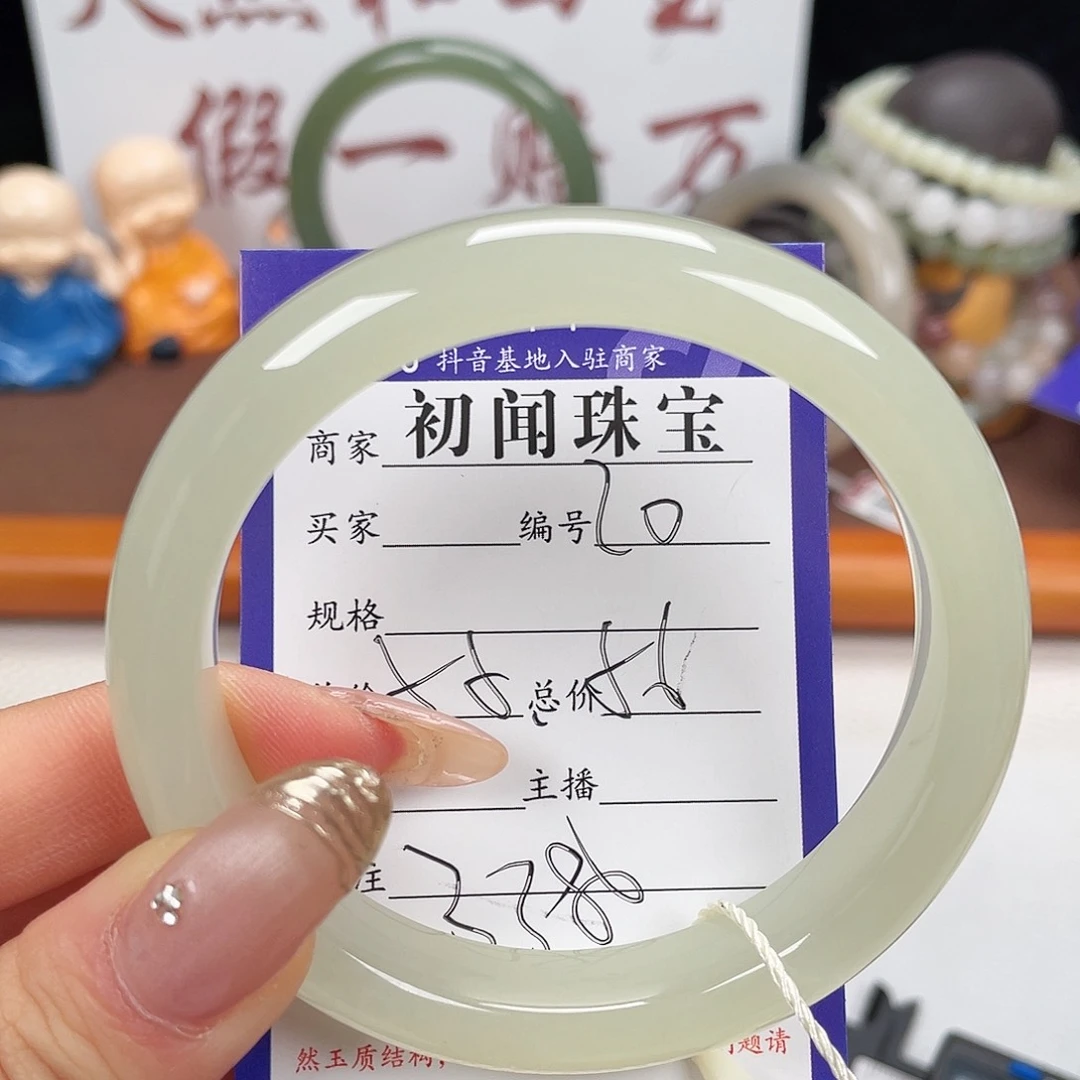 假一赔万
抖音基地入驻商家
商家 初闻珠宝
买家 编号 20
规格
总价
主播
注 3386
然玉质结构,
题请